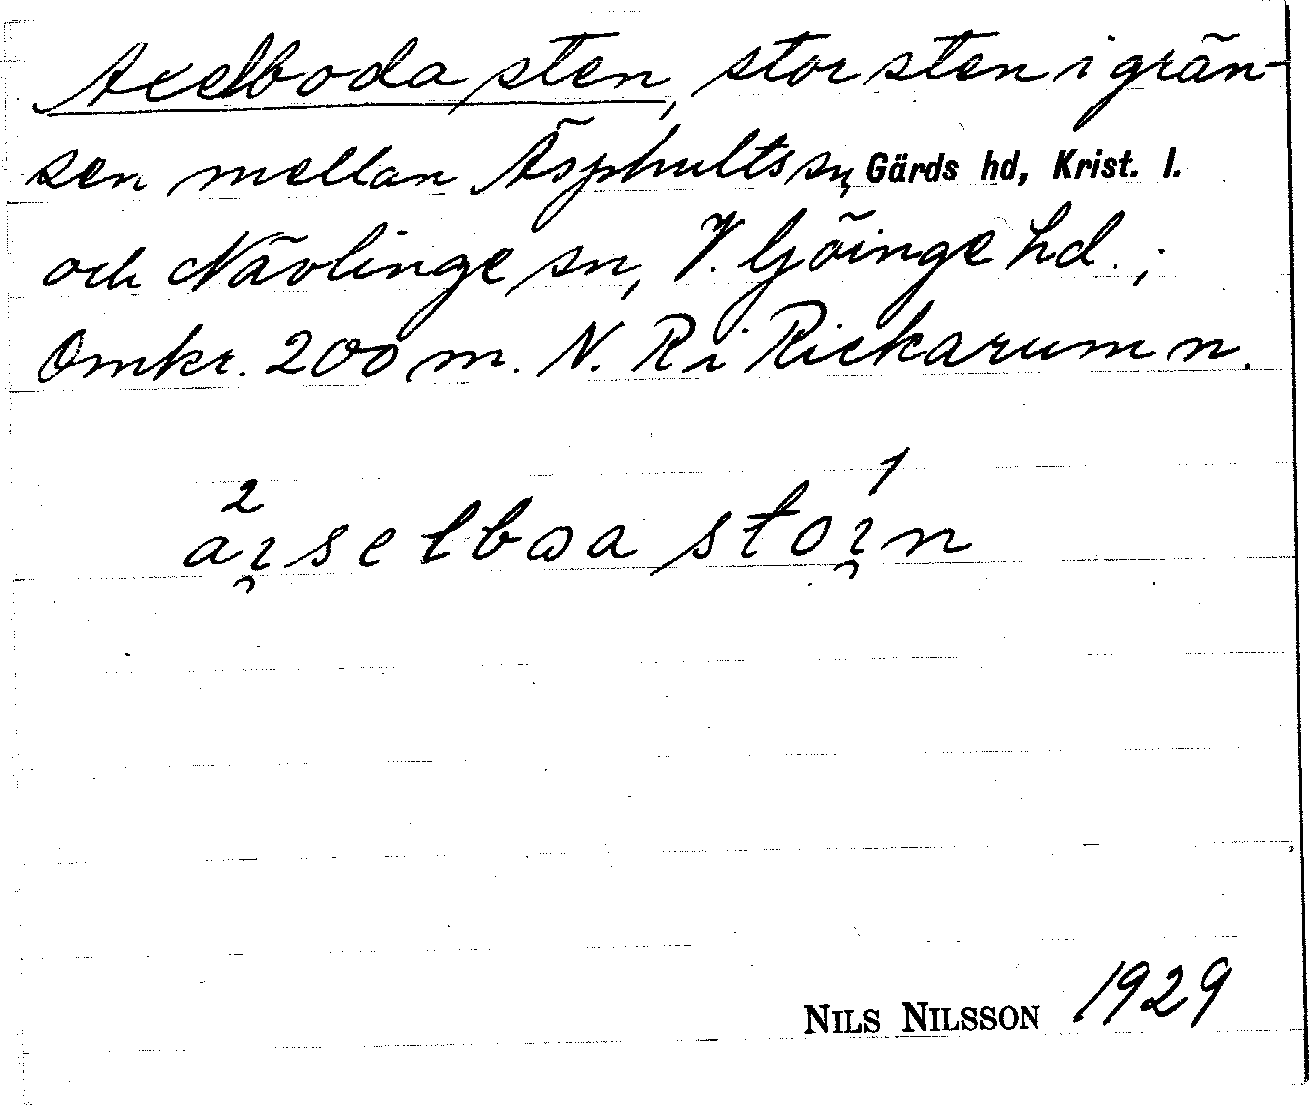 Axelboda sten, stor sten i grän-
sen mellan Äsphults sn, Gärds hd, Krist. l.
och Nävlinge sn, V. Göinge hd.;
Omkr. 200 m. N. R i Rickarum n.
2 1
aı̯selbɷa stoı̯n
NILS NILSSON 1929